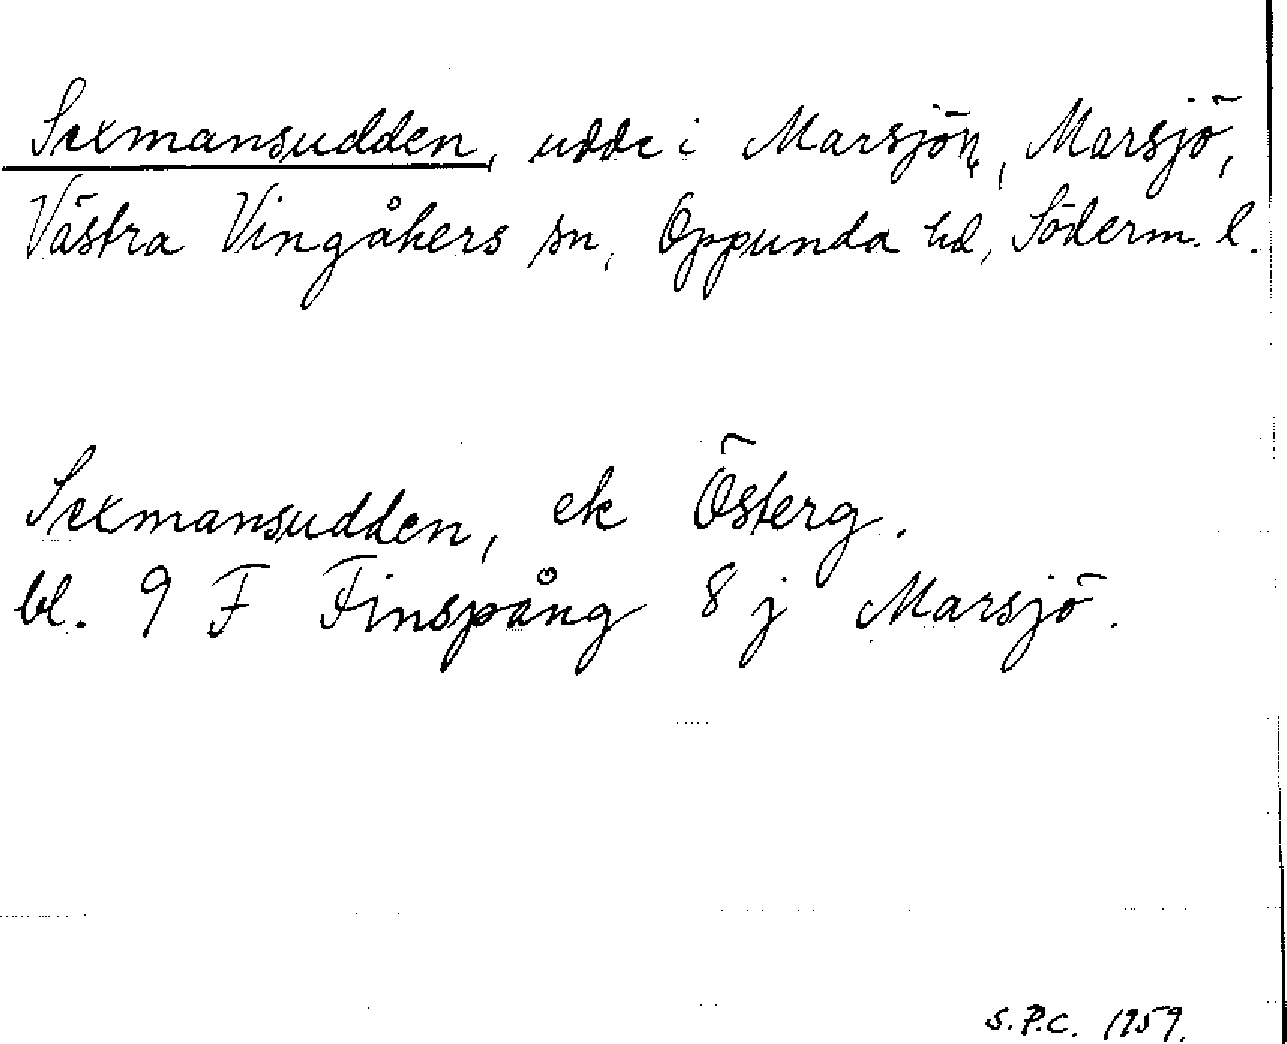 Sexmansudden, udde i Marsjön, Marsjö,
Västra Vingåkers sn, Oppunda hd, Söderm. l.
Sexmansudden, ek Österg.
bl. 9 F Finspång 8 j Marsjö.
S.P.C. 1959.